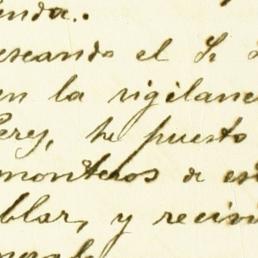 enda..
eseando el Sr
en la vigilanc
Perez, he puesto
monteros de es
blar, y recin